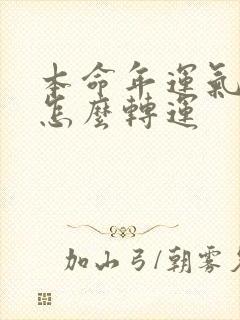 本命年運氣
怎麼轉運
加山弓/朝雾